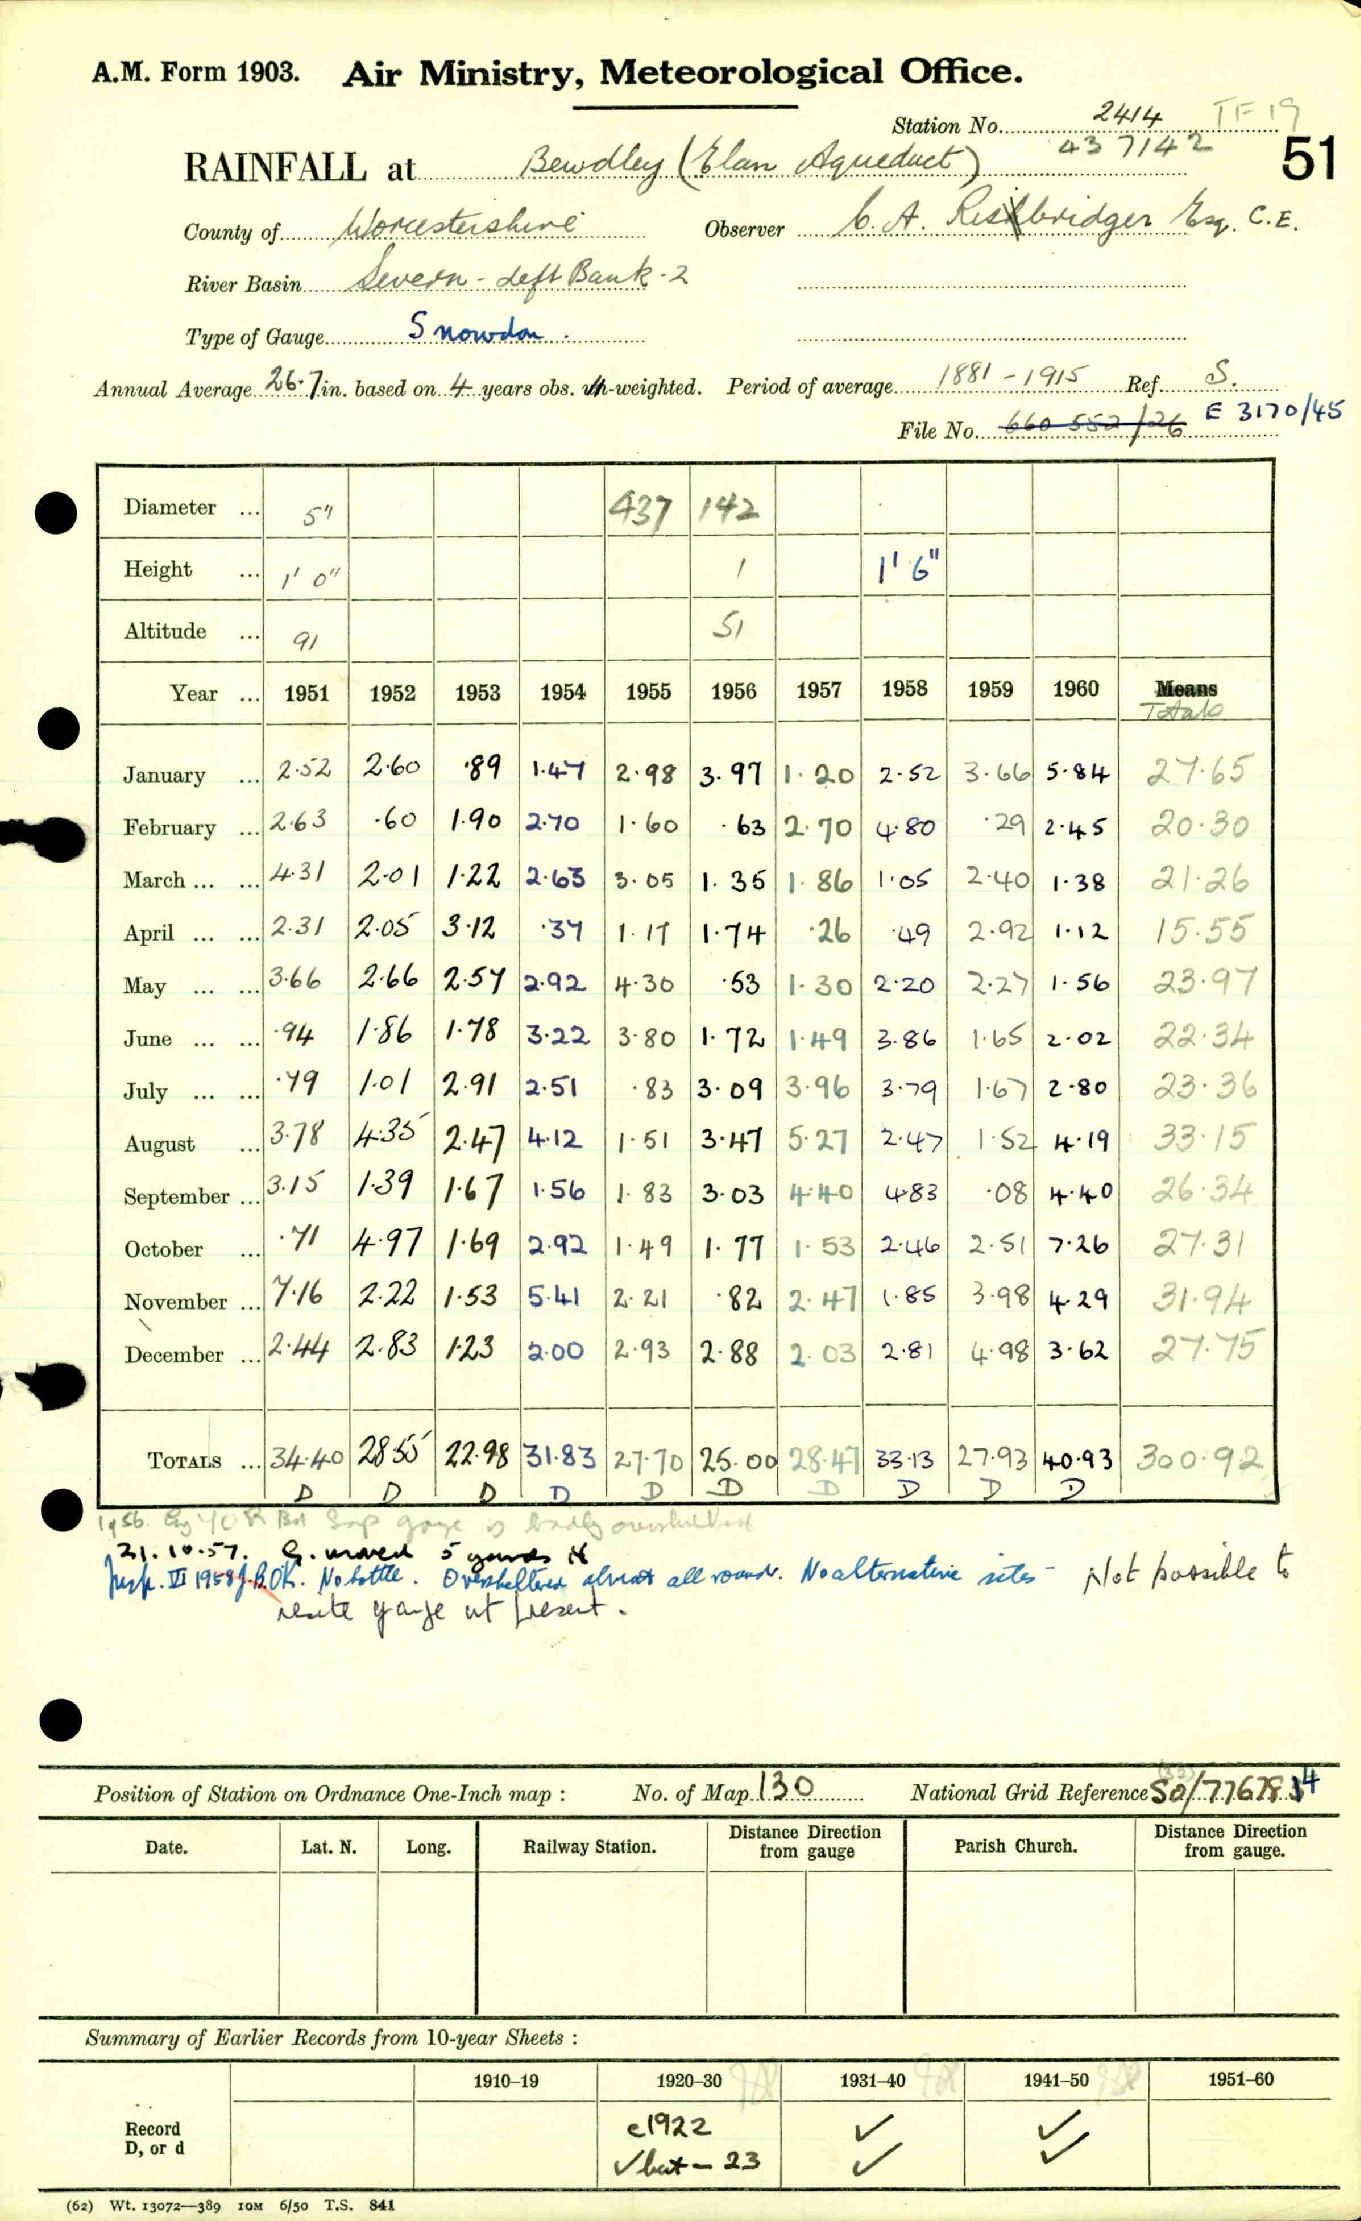 A.M. Form 1903. Air Ministry, Meteorological Office.
Station No. 2414 TF19
437142
51
RAINFALL at Bewdley (Elan Aqueduct)
County of Worcestershire Observer C. A. Risbridger Esq. C.E.
River Basin Severn - Left Bank - 2
Type of Gauge Snowdon.
Annual Average 26.7 in. based on 4 years obs. -weighted. Period of average 1881-1915 Ref. S.
File No. 660 552/26 E 3170/45
Diameter ... 5" 437 142
Height ... 1' 0" 1 1' 6"
Altitude ... 91 51
Year ... 1951 1952 1953 1954 1955 1956 1957 1958 1959 1960 Means
Totals
January ... 2.52 2.60 .89 1.47 2.98 3.97 1.20 2.52 3.66 5.84 27.65
February ... 2.63 .60 1.90 2.70 1.60 .63 2.70 4.80 .29 2.45 20.30
March ... ... 4.31 2.01 1.22 2.63 3.05 1.35 1.86 1.05 2.40 1.38 21.26
April ... ... 2.31 2.05 3.12 .37 1.17 1.74 .26 .49 2.92 1.12 15.55
May ... ... 3.66 2.66 2.57 2.92 4.30 .53 1.30 2.20 2.27 1.56 23.97
June ... ... .94 1.86 1.78 3.22 3.80 1.72 1.49 3.86 1.65 2.02 22.34
July ... ... .79 1.01 2.91 2.51 .83 3.09 3.96 3.79 1.67 2.80 23.36
August ... 3.78 4.35 2.47 4.12 1.51 3.47 5.27 2.47 1.52 4.19 33.15
September ... 3.15 1.39 1.67 1.56 1.83 3.03 4.40 4.83 .08 4.40 26.34
October ... .71 4.97 1.69 2.92 1.49 1.77 1.53 2.46 2.51 7.26 27.31
November ... 7.16 2.22 1.53 5.41 2.21 .82 2.47 1.85 3.98 4.29 31.94
December ... 2.44 2.83 1.23 2.00 2.93 2.88 2.03 2.81 4.98 3.62 27.75
TOTALS ... 34.40 28.55 22.98 31.83 27.70 25.00 28.47 33.13 27.93 40.93 300.92
D D D D D D D D D D
1956. gauge is badly oversheltered
21.10.57. G. moved 5 yards N
Insp. VI 1958 OK. No bottle. Oversheltered almost all round. No alternative sites - Not possible to
resite gauge at present.
Position of Station on Ordnance One-Inch map : No. of Map 130 National Grid Reference SO/776783 4
Date. Lat. N. Long. Railway Station. Distance Direction from gauge Parish Church. Distance Direction from gauge.
Summary of Earlier Records from 10-year Sheets :
1910–19 1920–30 1931–40 1941–50 1951–60
Record c1922 ✓ ✓
D, or d ✓ but - 23 ✓ ✓
(62) Wt. 13072—389 10M 6/50 T.S. 841